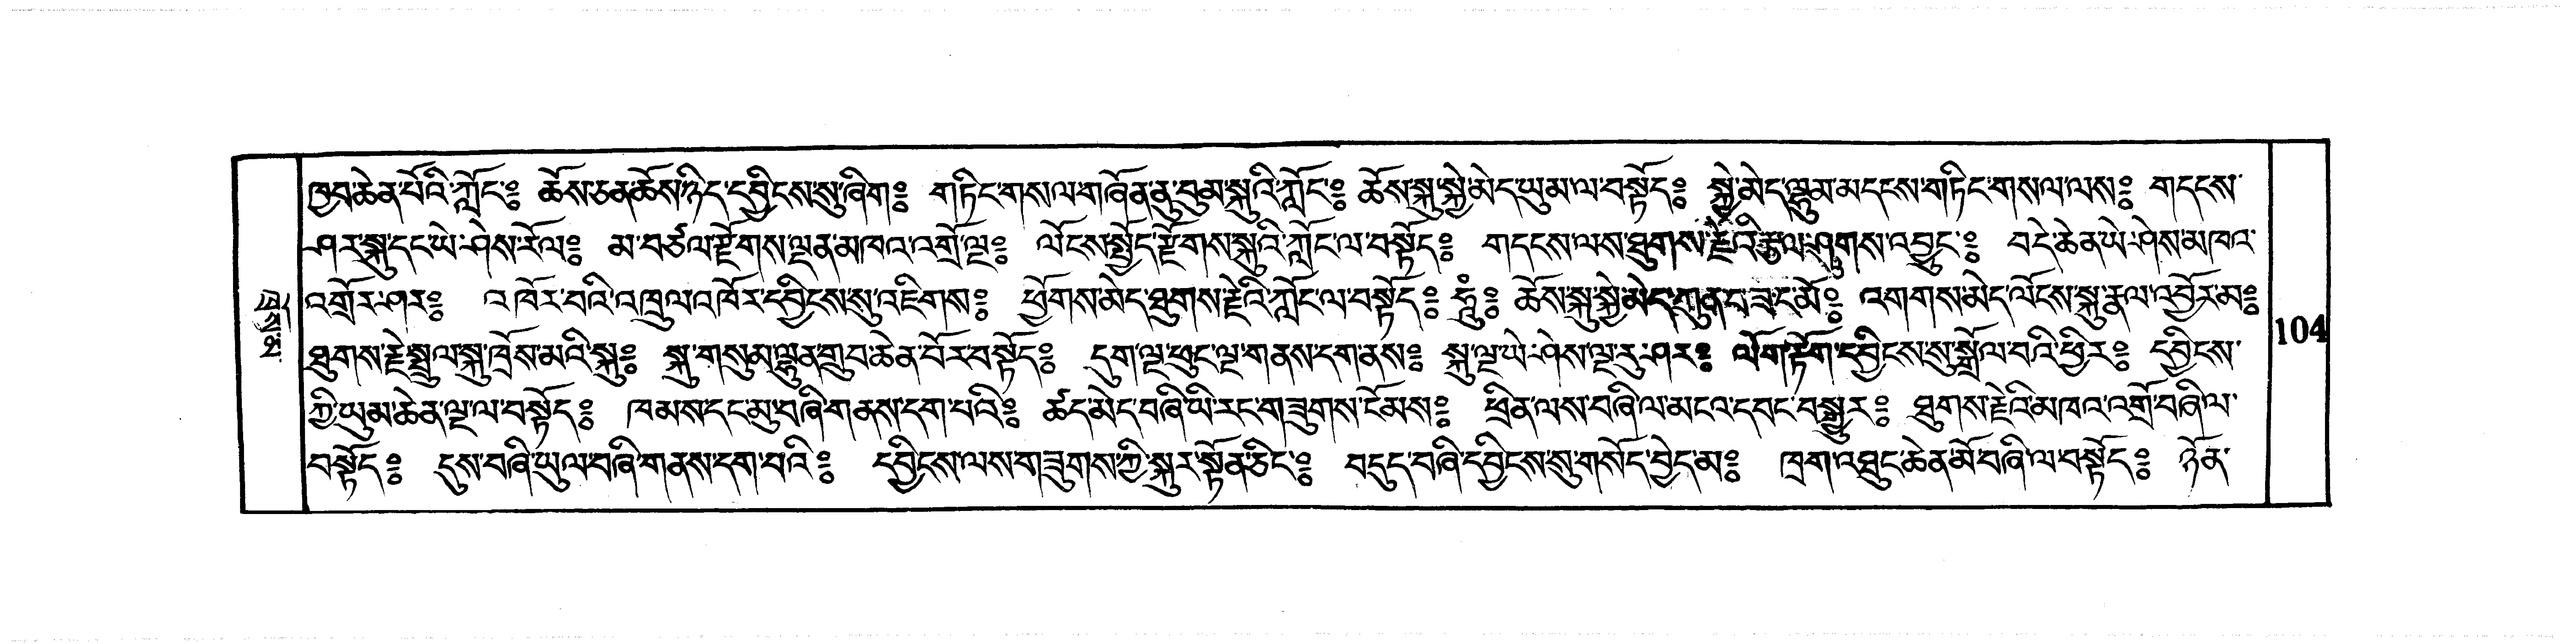 ཁྱབ་ཆེན་པོའི་ཀློང་༔ ཆོས་ཅན་ཆོས་ཉིད་དབྱིངས་སུ་ཞིག༔ གཏིང་གསལ་གཞོན་ནུ་བུམ་སྐུའི་ཀློང་༔ ཆོས་སྐུ་སྐྱེ་མེད་ཡུམ་ལ་བསྟོད༔ སྐྱེ་མེད་ལྷུམ་མདངས་གཏིང་གསལ་ལས༔ གདངས་
ཤར་སྐུ་དང་ཡེ་ཤེས་རོལ༔ མ་བཙལ་རྫོགས་ལྡན་མཁའ་འགྲོ་ལྔ༔ ལོངས་སྤྱོད་རྫོགས་སྐུའི་ཀློང་ལ་བསྟོད༔ གདངས་ལས་ཐུགས་རྗེའི་རྩལ་ཤུགས་འབྱུང་༔ བདེ་ཆེན་ཡེ་ཤེས་མཁའ་
འགྲོར་ཤར༔ འཁོར་བའི་འཁྲུལ་འཁོར་དབྱིངས་སུ་འཇིགས༔ ཕྱོགས་མེད་ཐུགས་རྗེའི་ཀློང་ལ་བསྟོད༔ ཧཱུྃ༔ ཆོས་སྐུ་སྐྱེ་མེད་ཀུན་ཏུ་བཟང་མོ༔ འགགས་མེད་ལོངས་སྐུ་རྣལ་འབྱོར་མ༔
ཐུགས་རྗེ་སྤྲུལ་སྐུ་ཁྲོས་མའི་སྐུ༔ སྐུ་གསུམ་ལྷུན་གྲུབ་ཆེན་པོར་བསྟོད༔ དུག་ལྔ་ཕུང་ལྔ་གནས་དག་ནས༔ སྐུ་ལྔ་ཡེ་ཤེས་ལྔ་རུ་ཤར༔ ལོག་རྟོག་དབྱིངས་སུ་སྒྲོལ་བའི་ཕྱིར༔ དབྱིངས་
ཀྱི་ཡུམ་ཆེན་ལྔ་ལ་བསྟོད༔ ཁམས་དང་མུ་བཞི་གནས་དག་པའི༔ ཚད་མེད་བཞི་ཡི་རང་གཟུགས་ངོམས༔ ཕྲིན་ལས་བཞི་ལ་མངའ་དབང་བསྒྱུར༔ ཐུགས་རྗེའི་མཁའ་འགྲོ་བཞི་ལ་
བསྟོད༔ དུས་བཞི་ཡུལ་བཞི་གནས་དག་པའི༔ དབྱིངས་ལས་གཟུགས་ཀྱི་སྐུར་སྟོན་ཅིང་༔ བདུད་བཞི་དབྱིངས་སུ་གསོད་བྱེད་མ༔ ཁྲག་འཐུང་ཆེན་མོ་བཞི་ལ་བསྟོད༔ ཉོན་
104